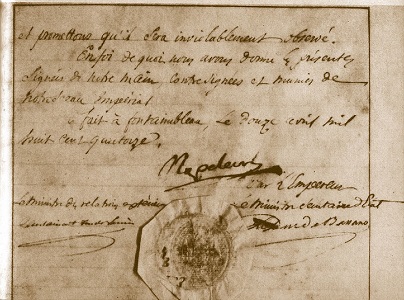 et promettons qu'il sera inviolablement observé.
En foi de quoi nous avons donné les présentes
Signées de notre main contresignées et munies de
notre sceau Impérial
fait à fontainebleau, Le douze avril mil
huit cent quatorze.
Napoleon
Par l'Empereur
Le Ministre des relations extérieures
Le Ministre Secrétaire d'Etat
Le Duc de Bassano